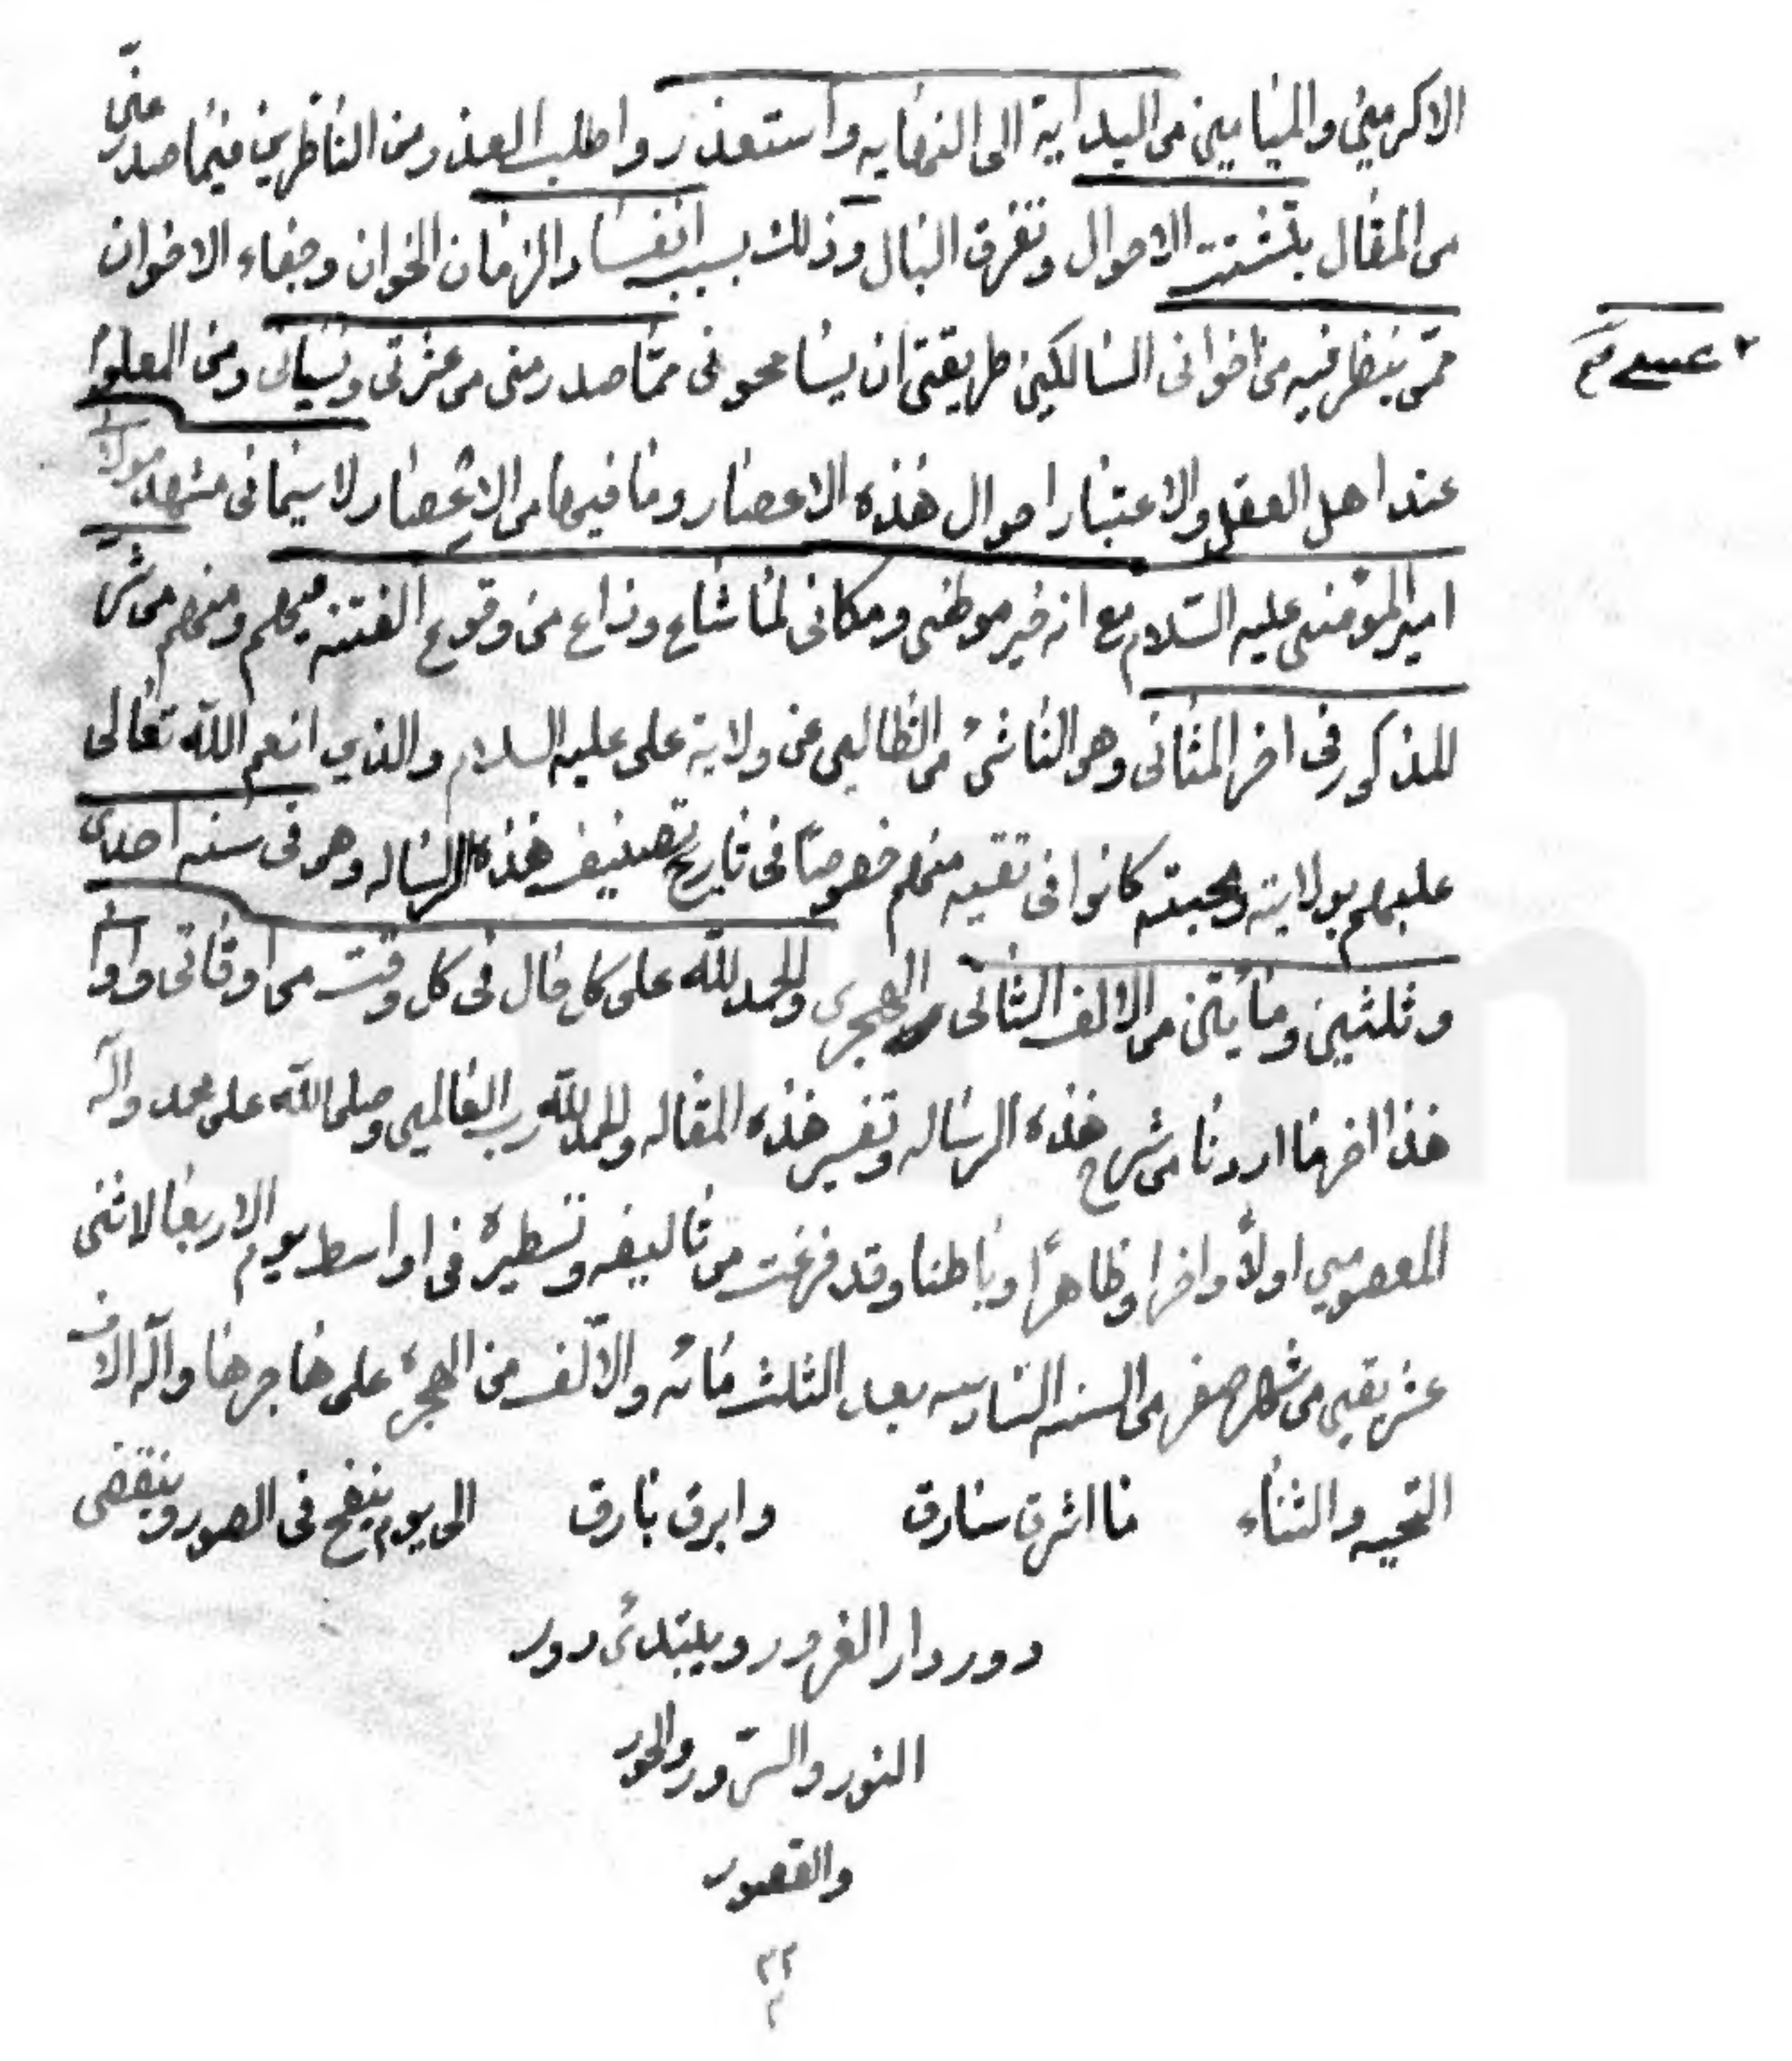 الاكرمين والميامين من البداية الى النهايه واستعذر واطلب العذر من الناظرين فيما صدر عنّي
من المقال بتشتت الاحوال وتفرق البال وذلك بسبب انفساد الزمان الخوان وجفاء الاخوان
ممّن ينظر فيه من اخواني السالكين طريقتي ان يسامحوني ممّا صدر مني من عثرتي ونسياني ومن المعلوم
عند اهل العقل والاعتبار احوال هذه الاعصار وما فيها من الاعصار لا سيما في مشهد مولانا
امير المؤمنين عليه السّلام مع انه خير موطني ومكاني لما شاع وذاع من وقوع الفتنه فيهم ومنهم من شرّ
المذكور في اخر المثاني وهو الناشئ من الظالمين عن ولاية على عليه السلام والذي انعم اللّه تعالى
عليهم بولايته ومحبته كانوا في تقيه منهم خصوصًا في تاريخ تصنيف هذه الرساله وهو في سنه احدى
وثلثين ومأيتن من الالف الثاني الهجري والحمد للّه على كل حال في كل وقت من اوقاتي واوا
هذا اخر ما اردنا من شرح هذه الرساله وتفسير هذه المقاله والحمد للّه رب العالمين وصلى اللّه على محمد واله
المعصومين اولاً واخرا وظاهرًا وباطنا وقد فرغت من تاليفه وتسطيره في اواسط يوم الاربعا لاثني
عشر بقين من شهر صفر من السنه السادسه بعد الثلث مائه والالف من الهجره على هاجرها وآله الاف
التحيه والثناء ما اشرق شارق وابرق بارق الى يوم ينفخ في الصور وينقضي
دور دار الغرور ويبتدئ دور
النور والسّرور والحور
والقصور